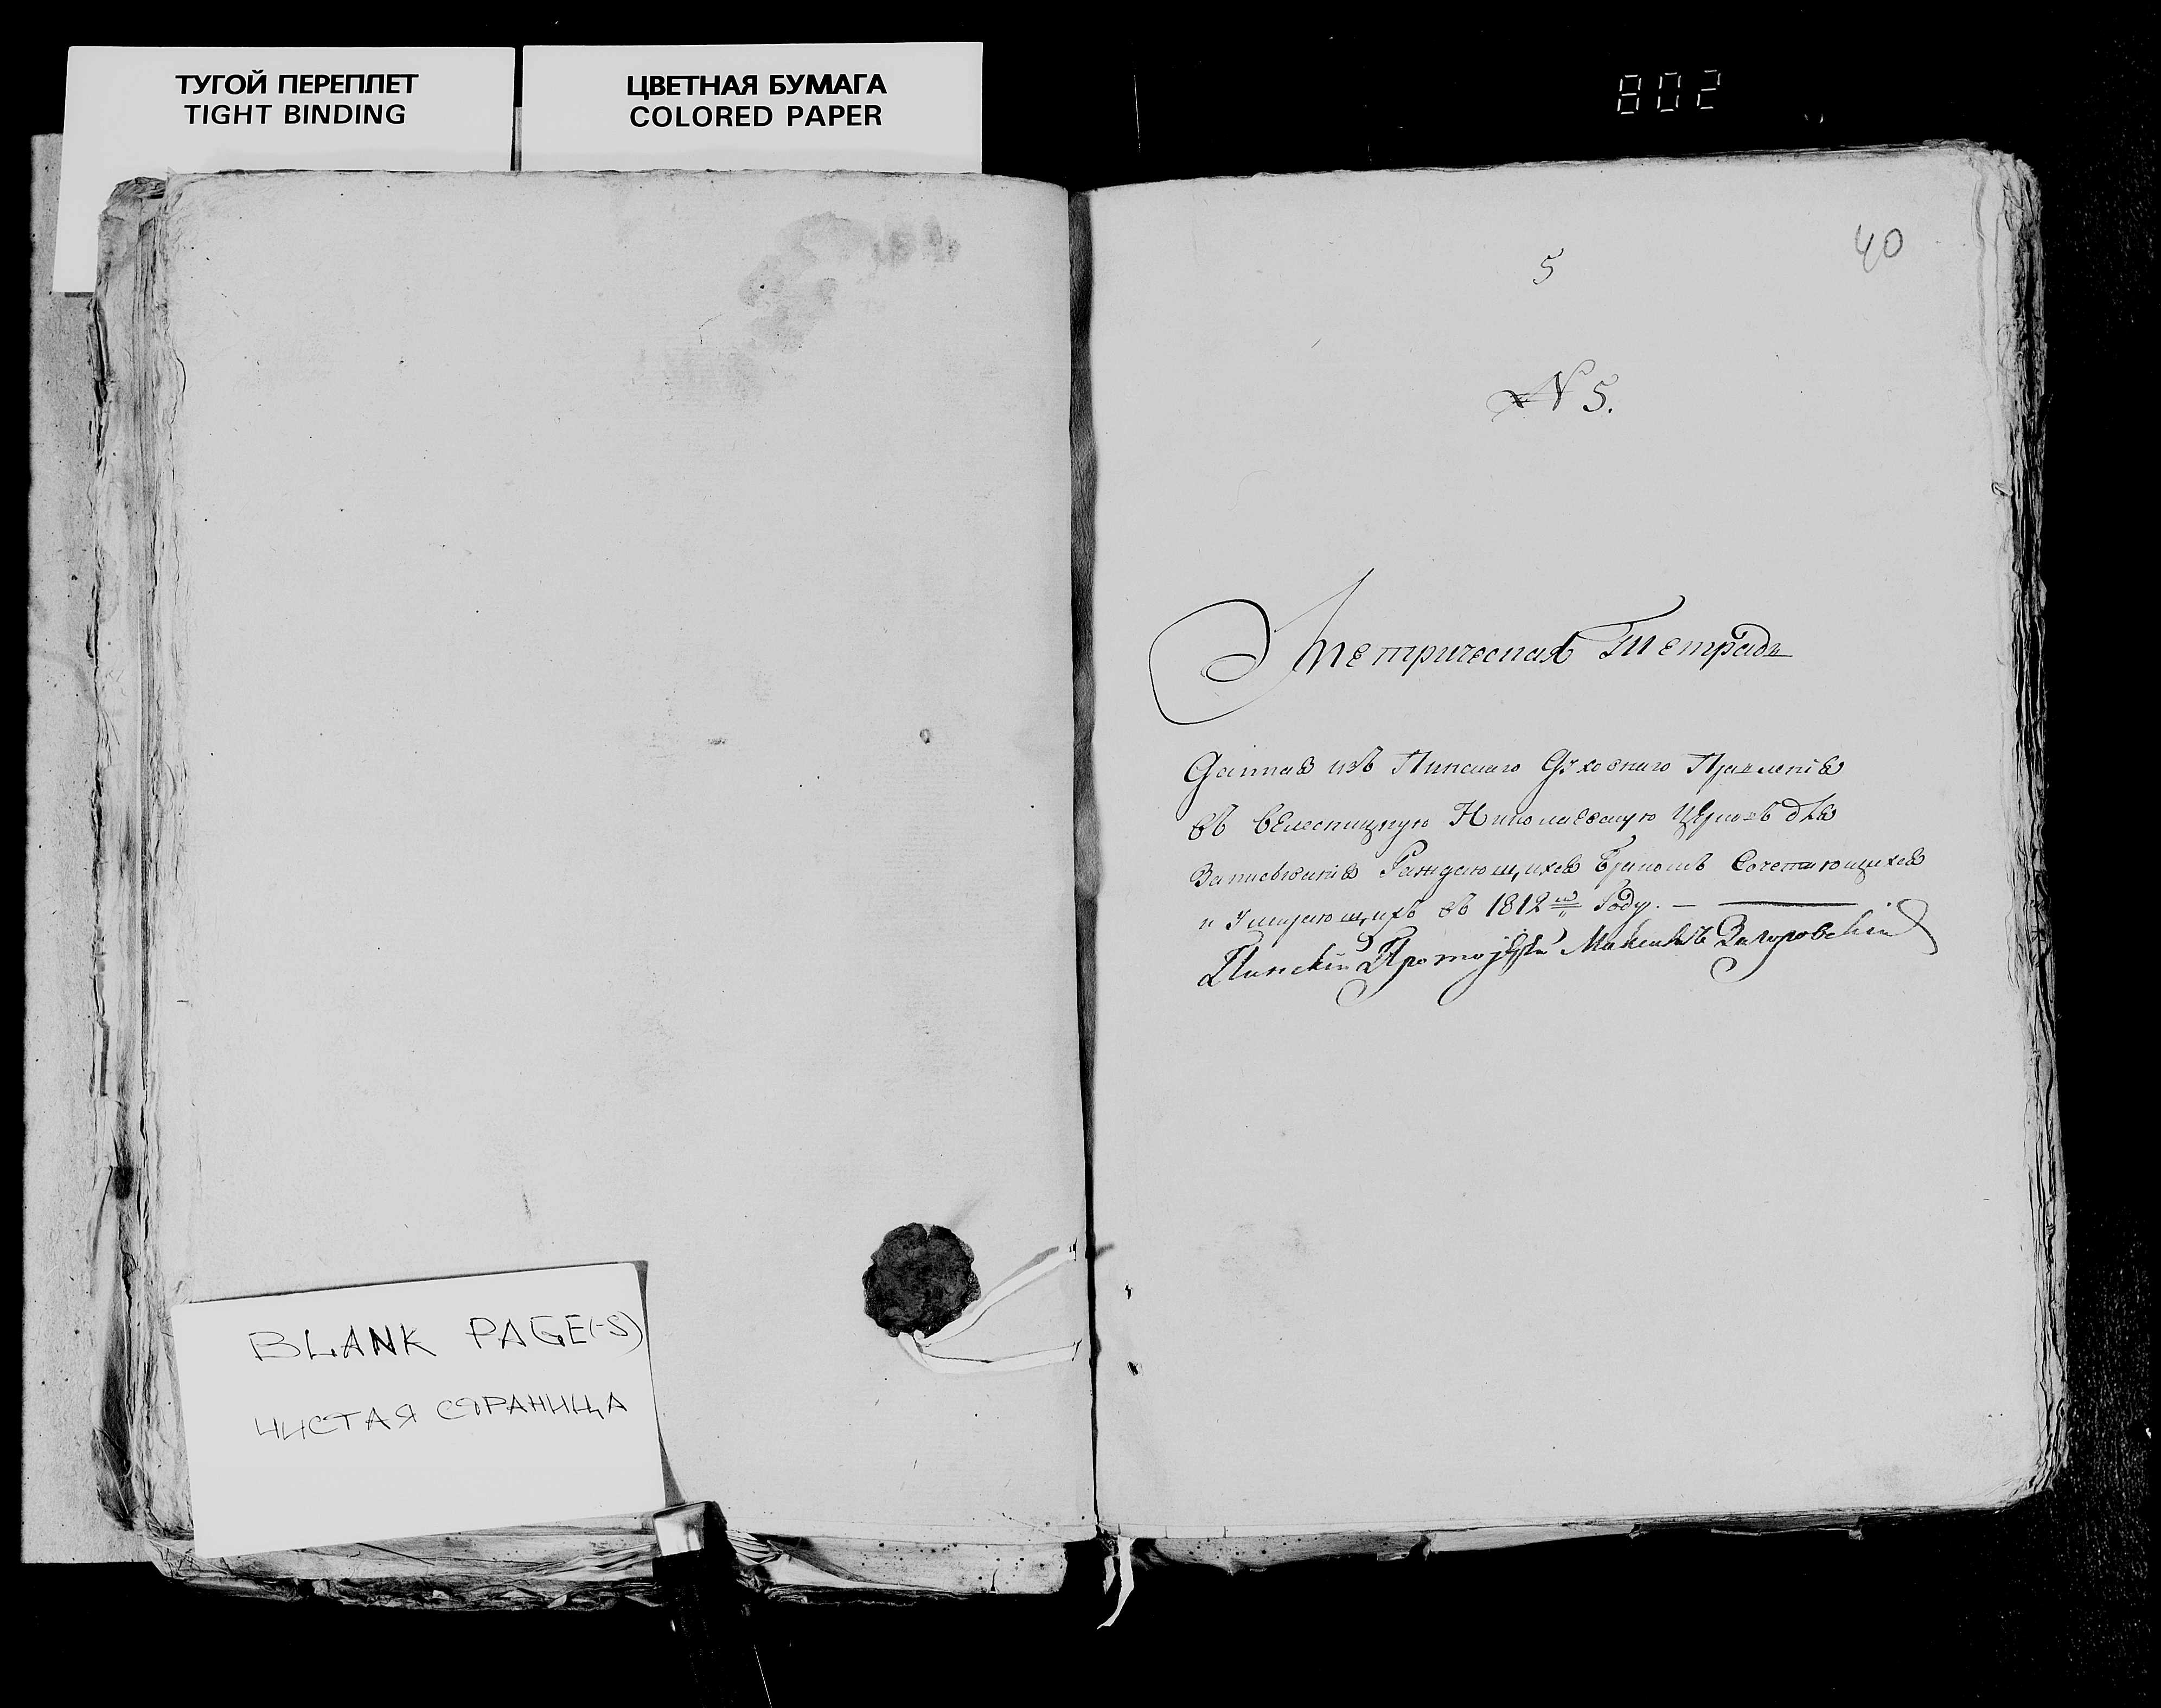 ТУГОЙ ПЕРЕПЛЕТ
TIGHT BINDING
ЦВЕТНАЯ БУМАГА
COLORED PAPER
802
40
5
№ 5.
Метрическая Тетрадь
Данная изъ Пинскаго Духовнаго Правленія
въ Велесницкую Николаевскую Церковь для
Записыванія Раждающихся Бракомъ Сочетающихся
и Умирающихъ въ 1812м Году. —
Пинскій Протоіерей Загоровскій
BLANK PAGE(-S)
ЧИСТАЯ СТРАНИЦА